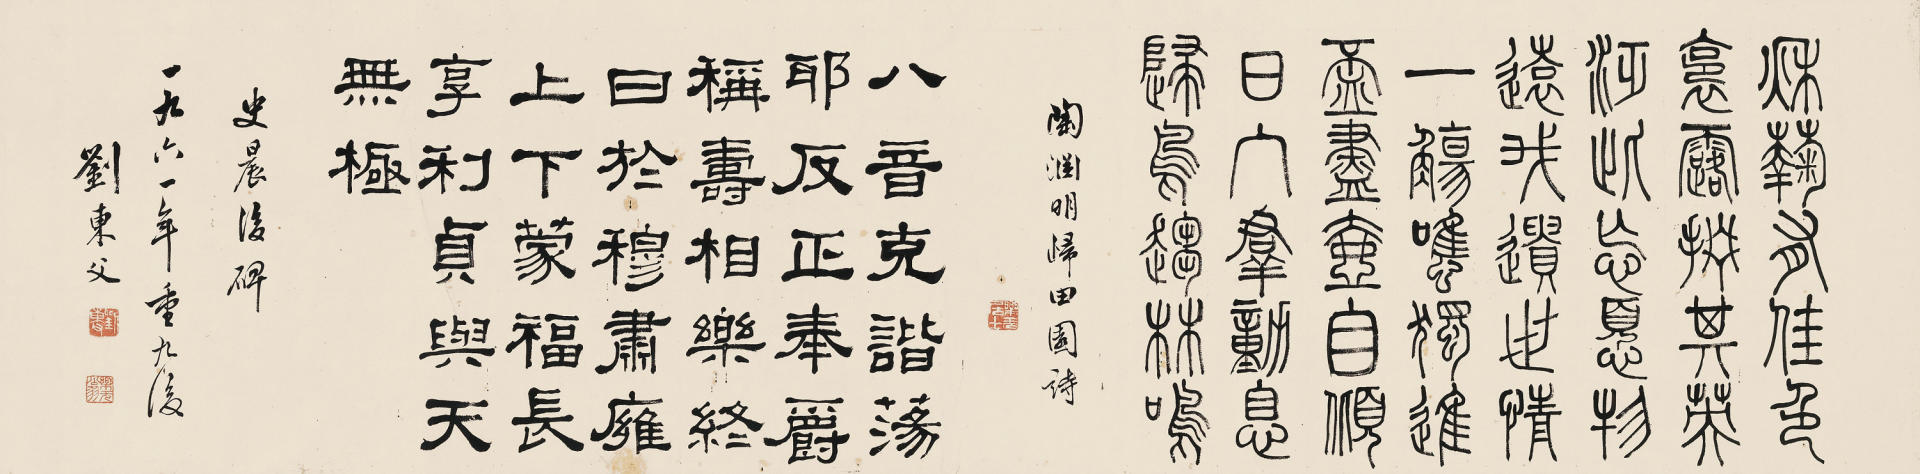 秌鞠有佳色
裛露掇其英
汎此忘憂物
遠我遺世情
一觴雖獨進
盃盡壺自傾
日入羣動息
歸鳥趨林鳴
陶淵明歸田園詩
八音克諧蕩
耶反正奉爵
稱壽相樂終
曰於穆肅廱
上下蒙福長
享利貞與天
無極
史晨後碑
一九六一年重九後
劉東父